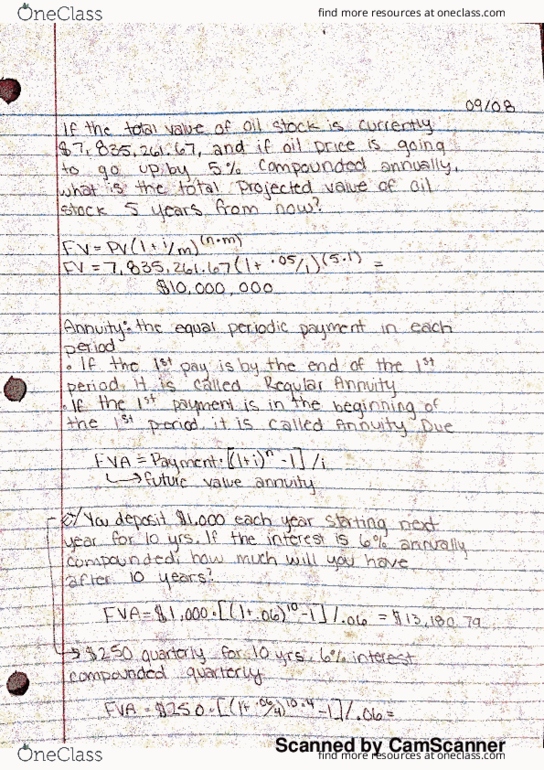 OneClass
find more resources at oneclass.com
09/08
If the total value of oil stock is currently
$7,835,261.67, and if oil price is going
to go up by 5% compounded annually,
what is the total projected value of oil
stock 5 years from now?
FV = PV(1+i/m)^(n·m)
FV = 7,835,261.67(1+ .05/1)^(5·1) =
$10,000,000
Annuity: the equal periodic payment in each
period
• If the 1st pay is by the end of the 1st
period, it is called Regular Annuity
• If the 1st payment is in the beginning of
the 1st period, it is called Annuity Due
FVA = Payment·[(1+i)^n -1]/i
↳ future value annuity
ex/ You deposit $1,000 each year starting next
year for 10 yrs. If the interest is 6% annually
compounded, how much will you have
after 10 years?
FVA = $1,000·[(1+.06)^10 -1]/.06 = $13,180.79
→ $250 quarterly for 10 yrs, 6% interest
compounded quarterly
FVA = $250·[(1+.06/4)^10·4 -1]/.06=
Scanned by CamScanner
OneClass
find more resources at oneclass.com